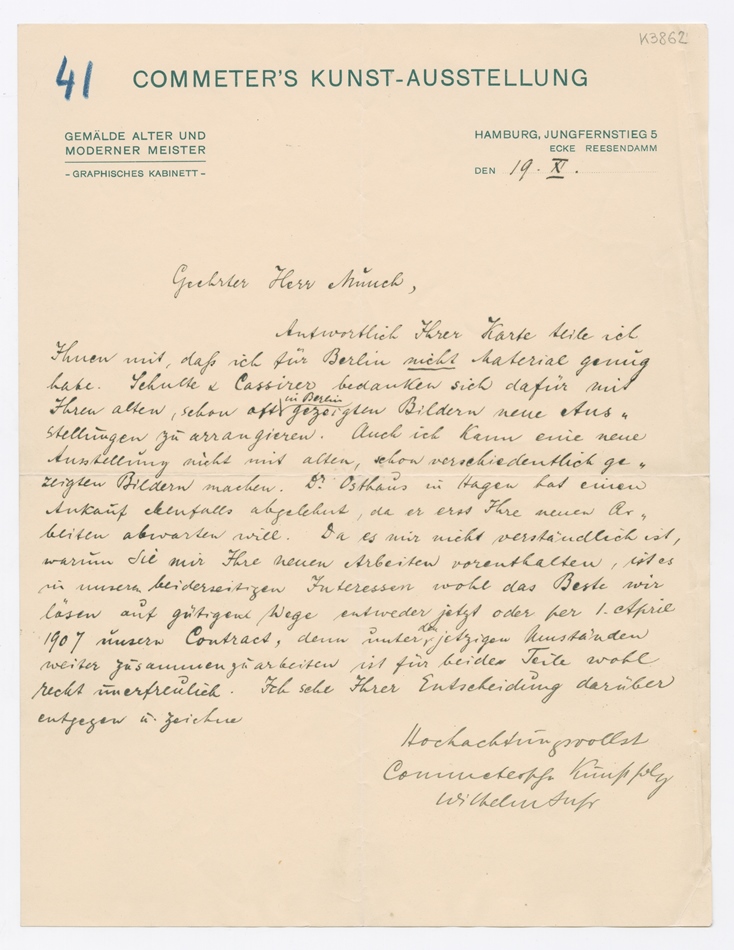 K3862
41
COMMETER'S KUNST-AUSSTELLUNG
GEMÄLDE ALTER UND
MODERNER MEISTER
- GRAPHISCHES KABINETT -
HAMBURG, JUNGFERNSTIEG 5
ECKE REESENDAMM
DEN 19. XI.
Geehrter Herr Munch,
Antwortlich Ihrer Karte teile ich
Ihnen mit, daß ich für Berlin nicht Material genug
habe. Schulte & Cassirer bedanken sich dafür mit
Ihren alten, schon oft in Berlin gezeigten Bildern neue Aus„
stellungen zu arrangieren. Auch ich kann eine neue
Ausstellung nicht mit alten, schon verschiedentlich ge„
zeigten Bildern machen. Dr. Osthaus in Hagen hat einen
Ankauf ebenfalls abgelehnt, da er erst Ihre neuen Ar„
beiten abwarten will. Da es mir nicht verständlich ist,
warum Sie mir Ihre neuen Arbeiten vorenthalten, ist es
in unserm beiderseitigen Interessen wohl das Beste wir
lösen auf gütigem Wege entweder jetzt oder per 1. April
1907 unsern Contract, denn unter den jetzigen Umständen
weiter zusammenzuarbeiten ist für beide Teile wohl
recht unerfreulich. Ich sehe Ihrer Entscheidung darüber
entgegen u. zeichne
Hochachtungsvollst
Commetersche Kunsthdlg
Wilhelm Suhr